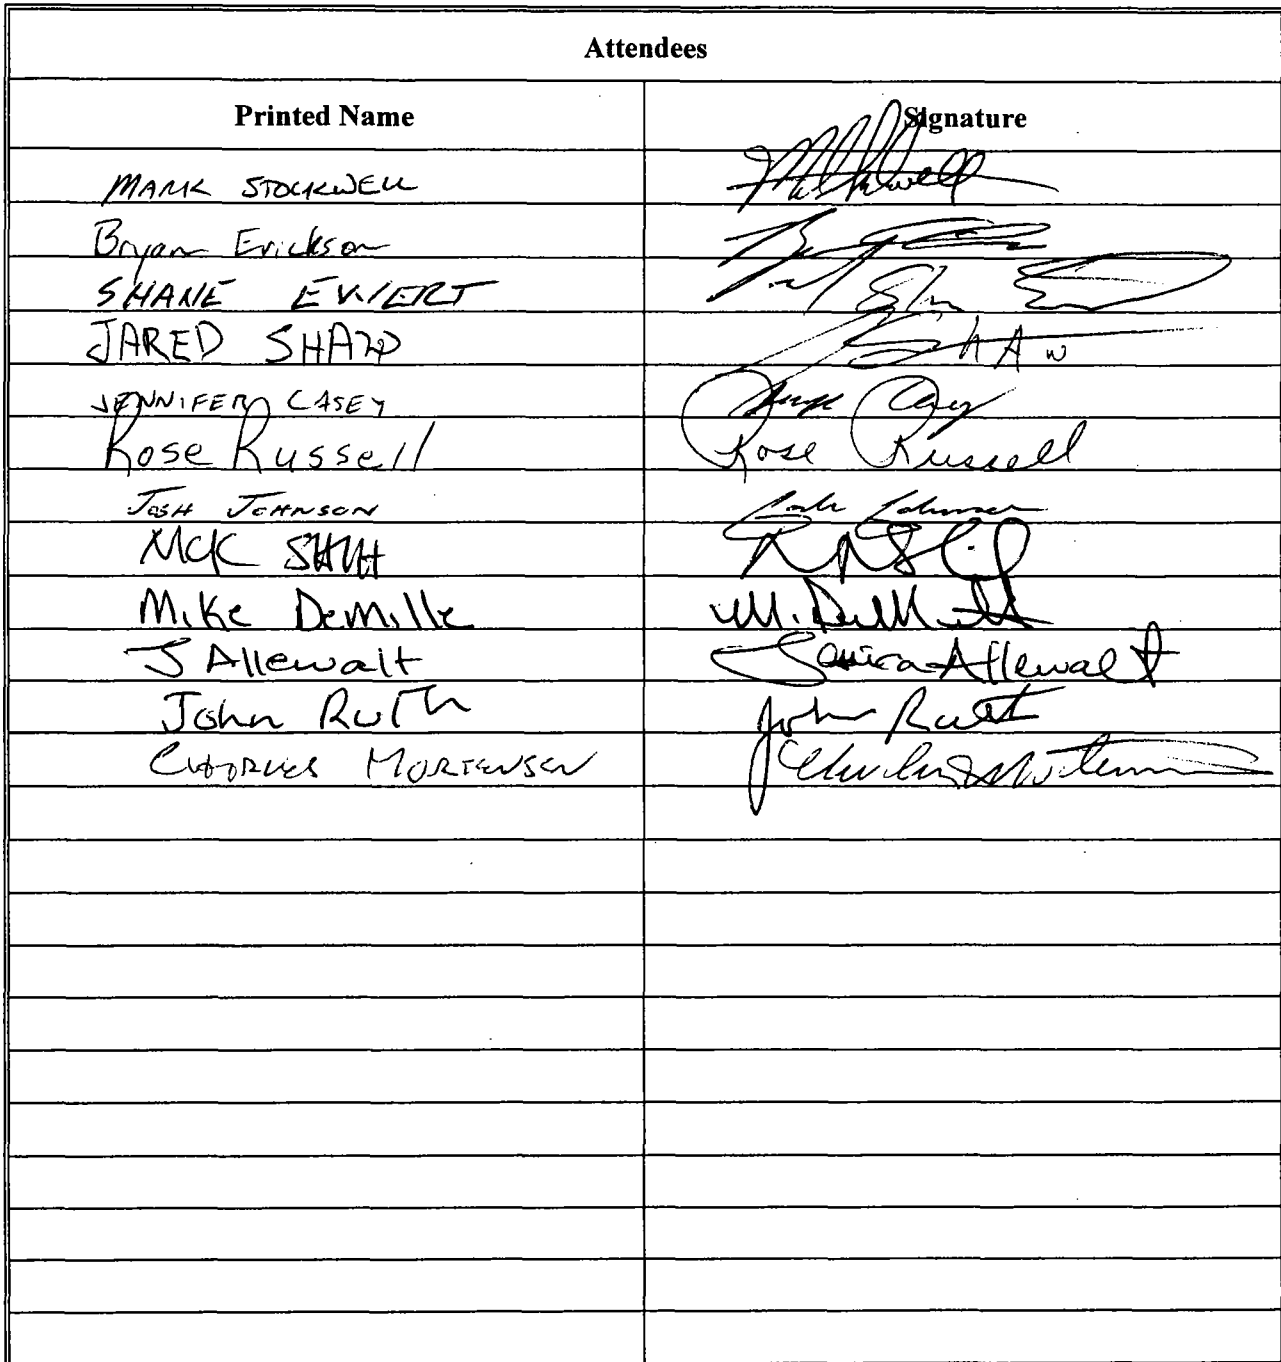 Attendees
Printed Name Signature
MARK STOCKWELL
Bryan Erickson
SHANE EWERT
JARED SHAW SHAW
JENNIFER CASEY Casey
Rose Russell Rose Russell
JOSH JOHNSON Josh Johnson
Mike DeMille
J Allewalt Jessica Allewalt
John Ruth John Ruth
MORTENSEN